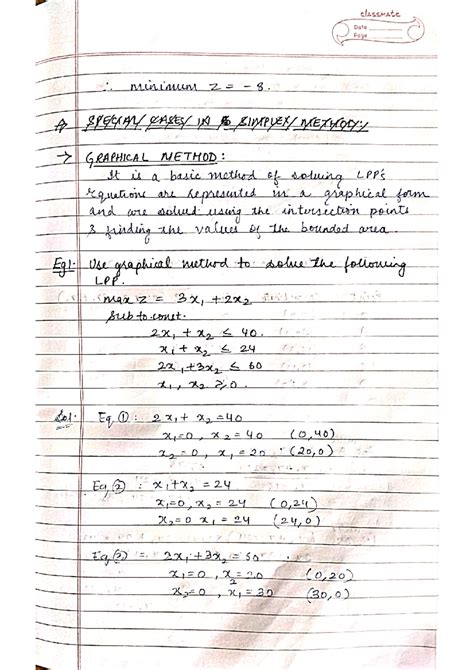 classmate
Date
Page
∴ minimum z = -8.
SPECIAL CASES IN SIMPLEX METHOD:
→ GRAPHICAL METHOD:
It is a basic method of solving LPP's
Equations are represented in a graphical form
and are solved using the intersection points
& finding the values of the bounded area.
Eg1: Use graphical method to solve the following
LPP.
max z = 3x₁ + 2x₂
Sub to const.
2x₁ + x₂ ≤ 40.
x₁ + x₂ ≤ 24
2x₁ + 3x₂ ≤ 60
x₁, x₂ ≥ 0.
Sol: Eq ①: 2x₁ + x₂ = 40
x₁=0, x₂ = 40 (0,40)
x₂ = 0, x₁ = 20 (20,0)
Eq ② : x₁+x₂ = 24
x₁=0, x₂ = 24 (0,24)
x₂=0 x₁ = 24 (24,0)
Eq ③ = 2x₁ + 3x₂ = 50
x₁=0, x₂ = 20 (0,20)
x₂=0, x₁ = 30 (30,0)